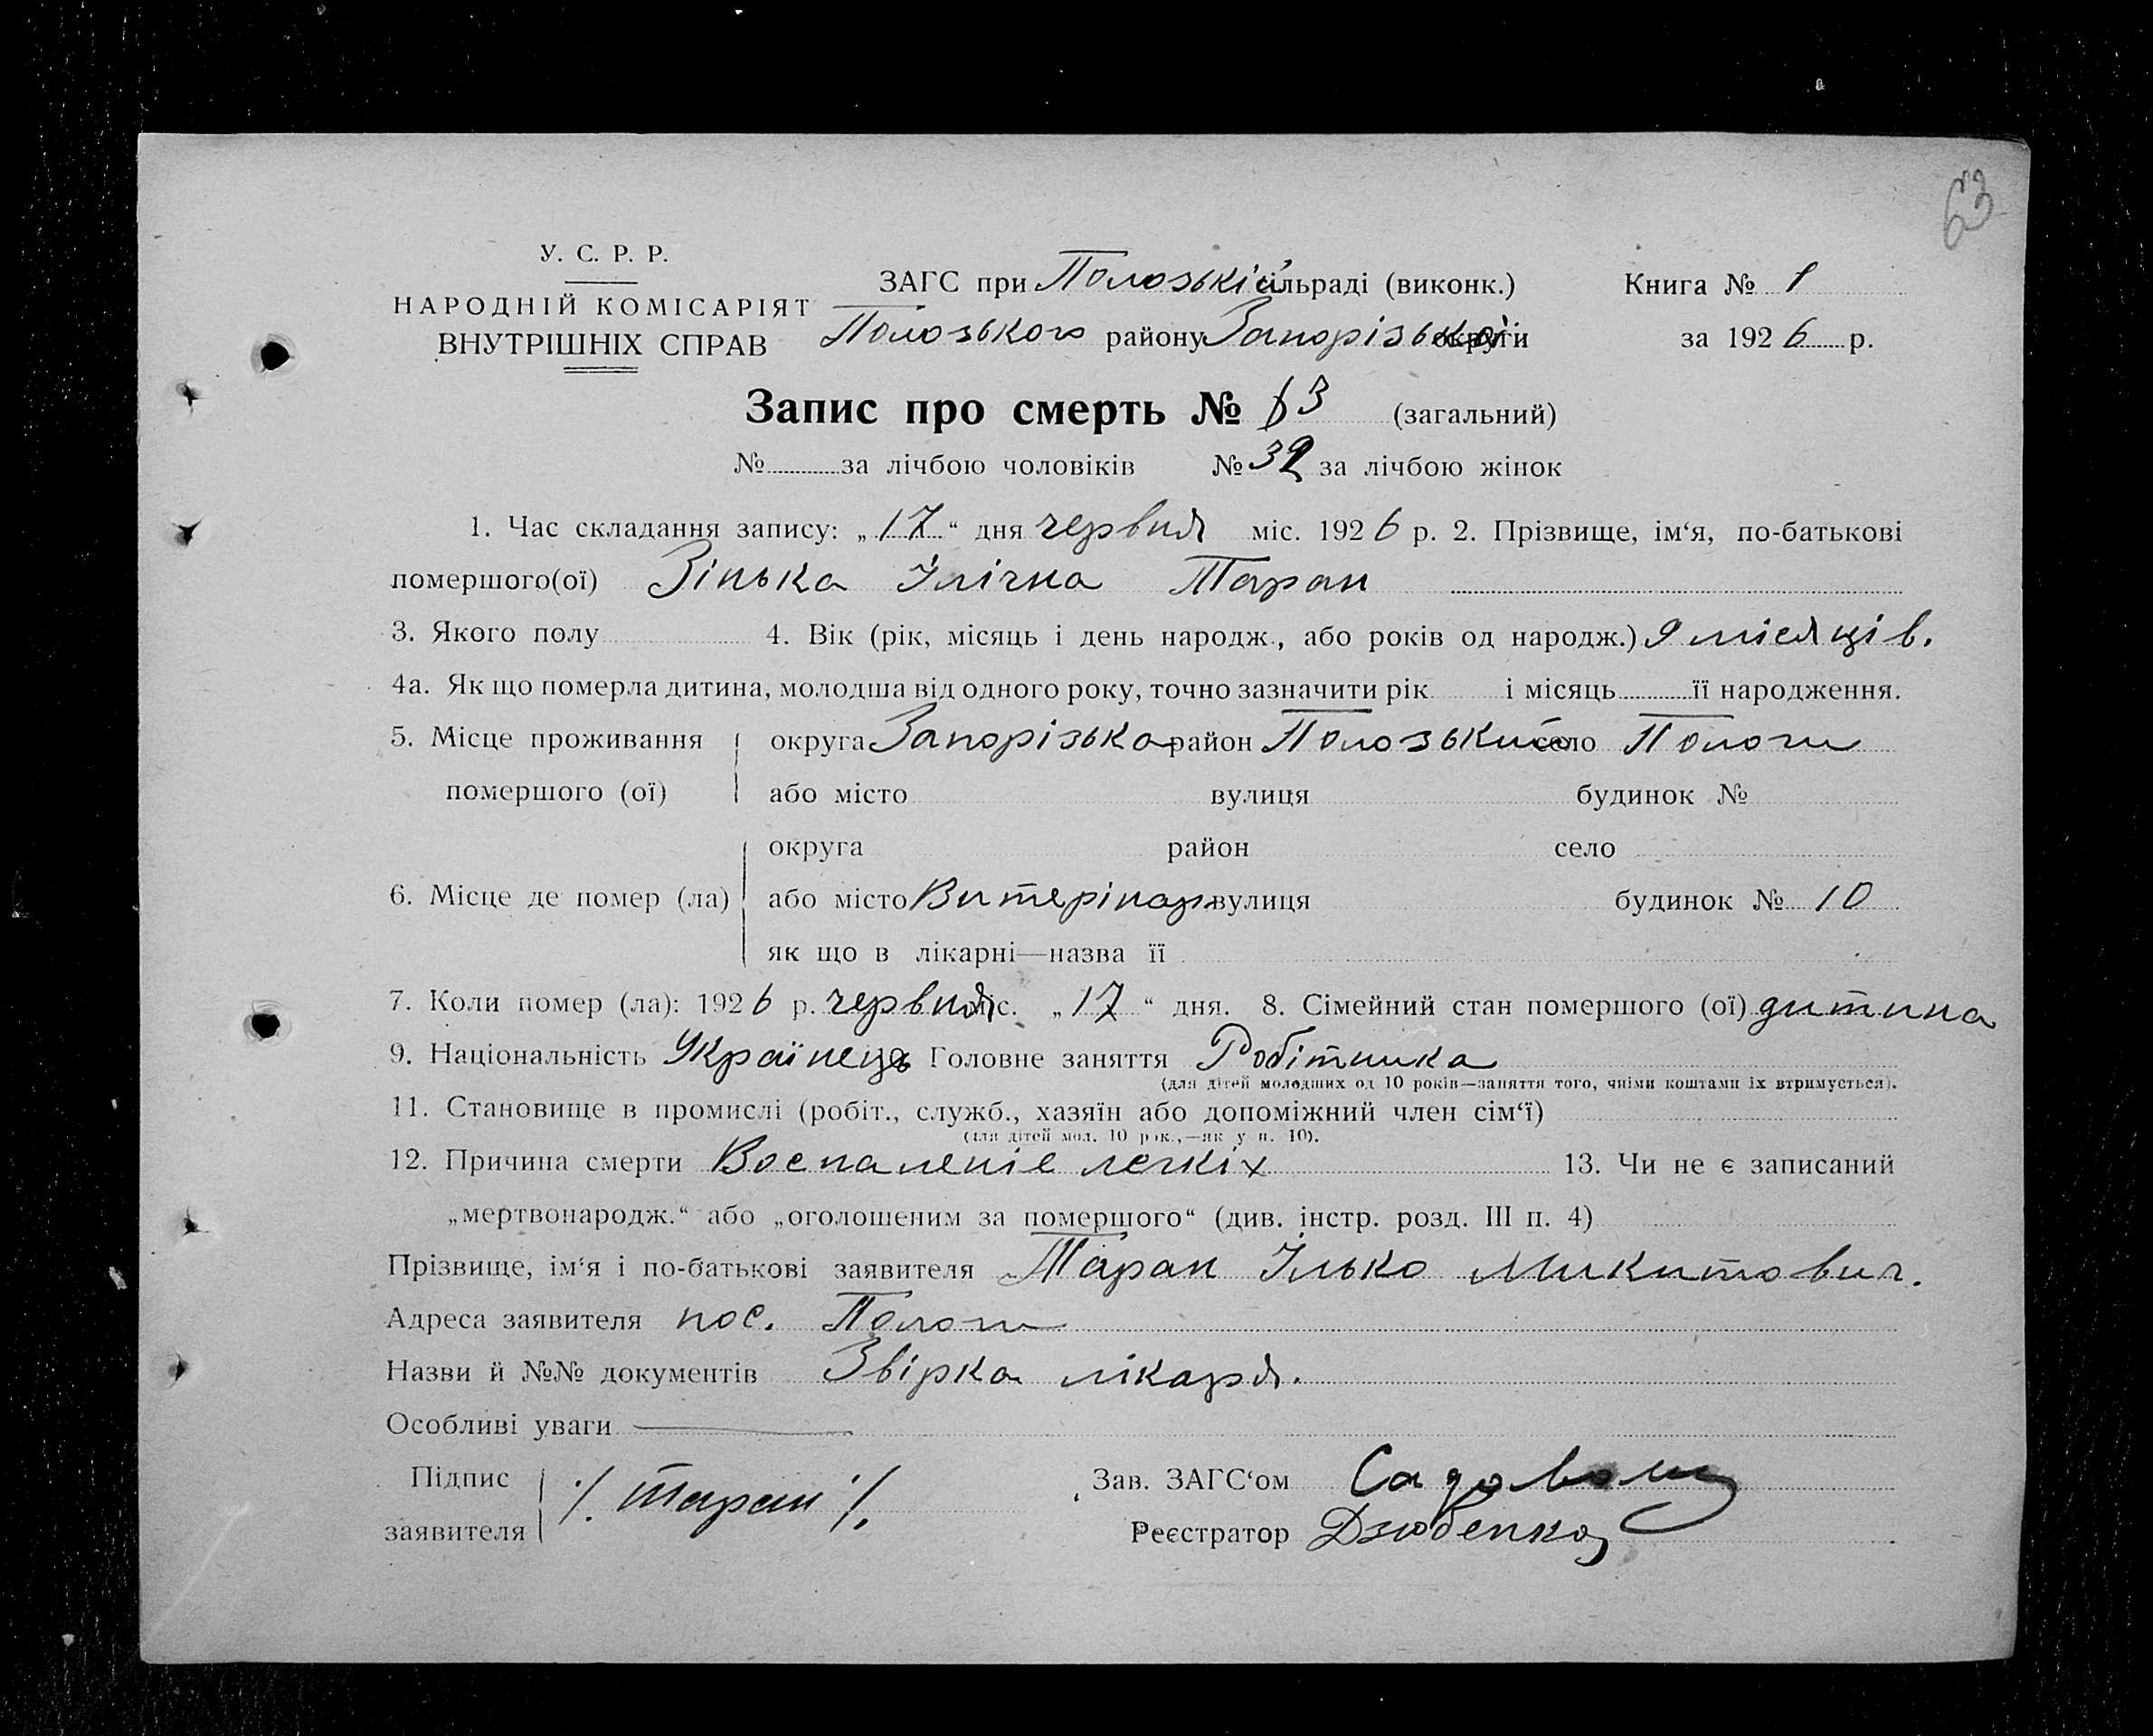 63
У. С. Р. Р.
НАРОДНІЙ КОМІСАРІЯТ
ВНУТРІШНІХ СПРАВ
ЗАГС при Полозькій сільраді (виконк.)
Полозького району Запорізької округи
Книга № 1
за 1926 р.
Запис про смерть № 63 (загальний)
№ за лічбою чоловіків № 32 за лічбою жінок
1. Час складання запису: „17“ дня червня міс. 1926 р. 2. Прізвище, ім‘я, по-батькові
помершого(ої) Зінька Ілічна Таран
3. Якого полу 4. Вік (рік, місяць і день народж., або років од народж.) 9 місяців.
4а. Як що померла дитина, молодша від одного року, точно зазначити рік і місяць її народження.
5. Місце проживання округа Запорізька район Полозький село Пологи
помершого (ої) або місто вулиця будинок №
округа район село
6. Місце де помер (ла) або місто Витерінар вулиця будинок № 10
як що в лікарні—назва її
7. Коли помер (ла): 1926 р. червня міс. „17“ дня. 8. Сімейний стан помершого (ої) дитина
9. Національність Українець Головне заняття Робітника
(для дітей молодших од 10 років—заняття того, чиїми коштами їх втримується).
11. Становище в промислі (робіт., служб., хазяїн або допоміжний член сім‘ї)
(для дітей мол. 10 рок.,—як у п. 10).
12. Причина смерти Воспаленіе легкіх 13. Чи не є записаний
„мертвонародж.“ або „оголошеним за помершого“ (див. інстр. розд. III п. 4)
Прізвище, ім‘я і по-батькові заявителя Таран Ілько Микитович.
Адреса заявителя пос. Пологи
Назви й №№ документів Звірка лікаря.
Особливі уваги
Підпис
заявителя /. Таран /.
Зав. ЗАГС‘ом
Реєстратор Дзюбенко